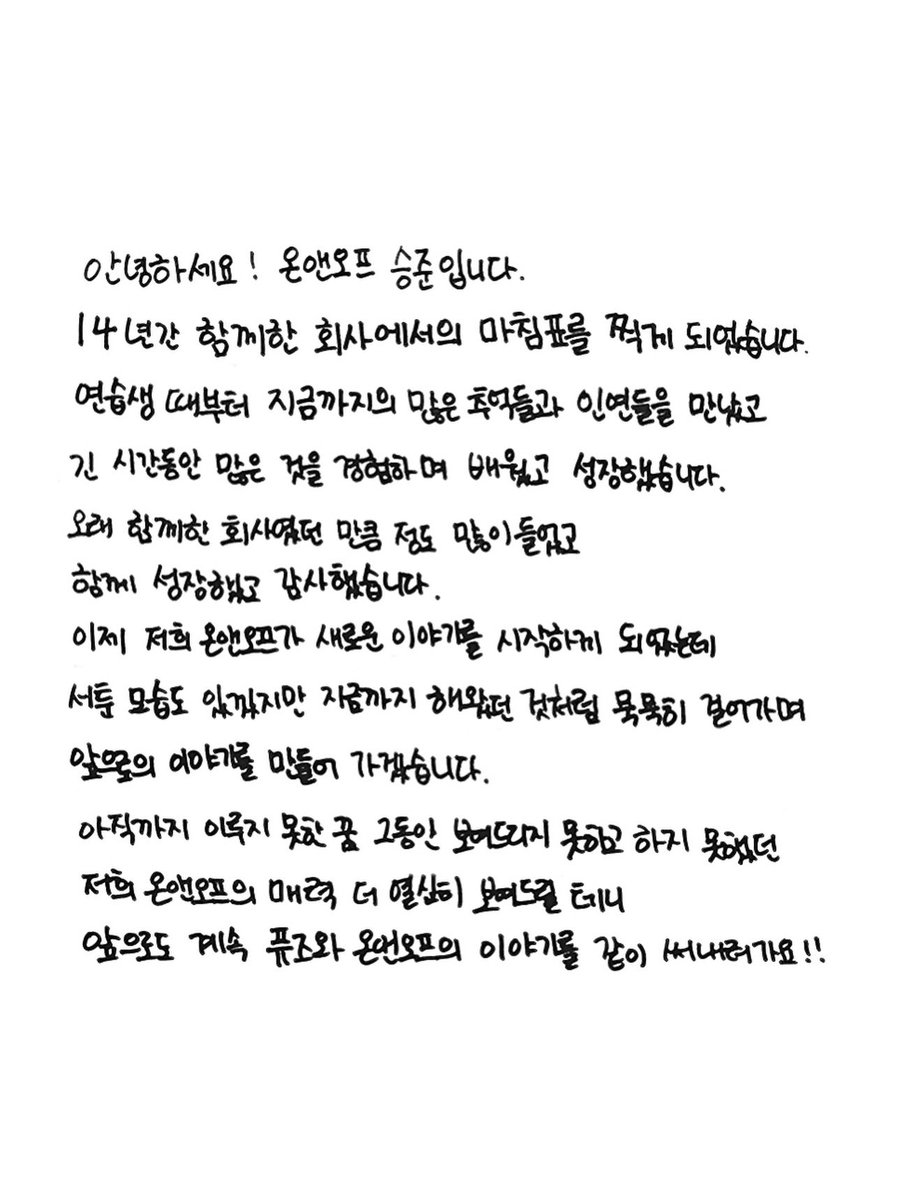 안녕하세요! 온앤오프 승준입니다.
14년간 함께한 회사에서의 마침표를 찍게 되었습니다.
연습생 때부터 지금까지의 많은 추억들과 인연들을 만났고
긴 시간동안 많은 것을 경험하며 배웠고 성장했습니다.
오래 함께한 회사였던 만큼 정도 많이들었고
함께 성장했고 감사했습니다.
이제 저희 온앤오프가 새로운 이야기를 시작하게 되었는데
서툰 모습도 있겠지만 지금까지 해왔던 것처럼 묵묵히 걸어가며
앞으로의 이야기를 만들어 가겠습니다.
아직까지 이루지 못한 꿈 그동안 보여드리지 못하고 하지 못했던
저희 온앤오프의 매력 더 열심히 보여드릴 테니
앞으로도 계속 퓨즈와 온앤오프의 이야기를 같이 써내려가요!!